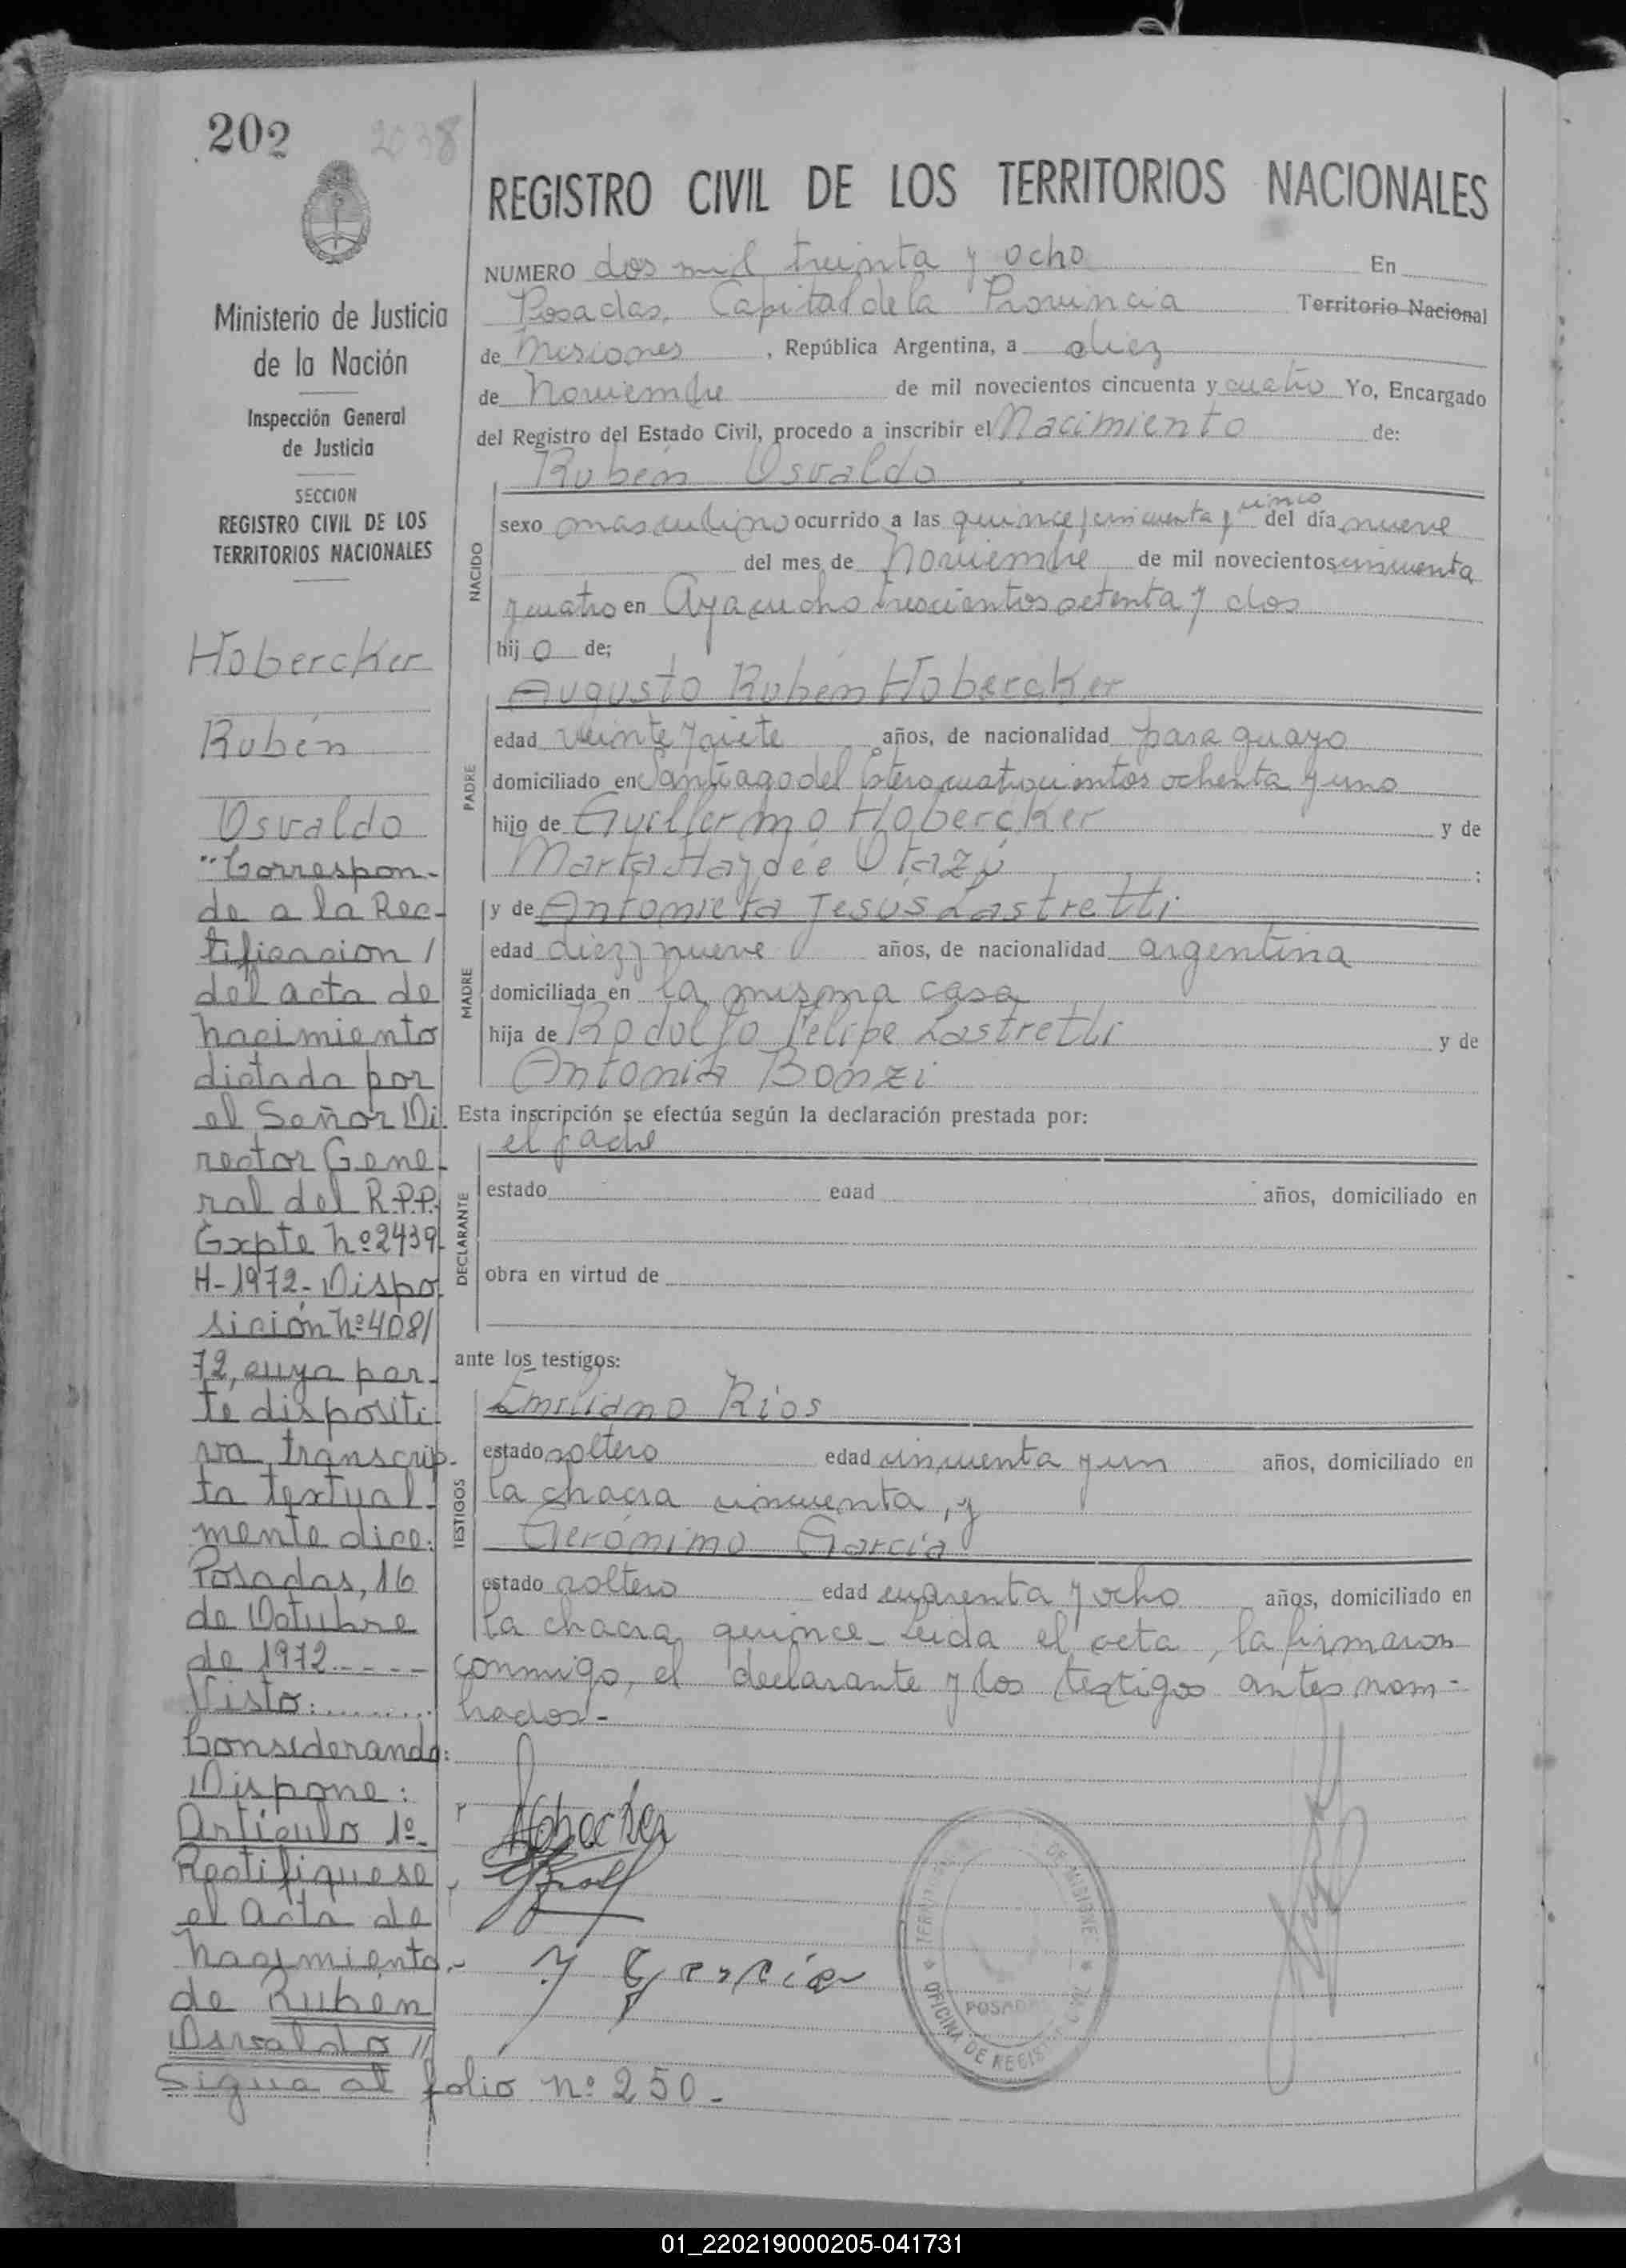 202 2038
REGISTRO CIVIL DE LOS TERRITORIOS NACIONALES
NUMERO dos mil treinta y ocho En
Posadas, Capital de la Provincia Territorio Nacional
de Misiones, República Argentina, a diez
de Noviembre de mil novecientos cincuenta y cuatro Yo, Encargado
del Registro del Estado Civil, procedo a inscribir el Nacimiento de:
Rubén Osvaldo
NACIDO
sexo masculino ocurrido a las quince, cincuenta y cinco del día nueve
del mes de Noviembre de mil novecientos cincuenta
y cuatro en Ayacucho trescientos setenta y dos
hij o de;
Augusto Rubén Hobercker
PADRE
edad veinte y siete años, de nacionalidad paraguayo
domiciliado en Santiago del Estero cuatrocientos ochenta y uno
hijo de Guillermo Hobercker y de
Marta Haydée Otazú ;
y de Antonieta Jesús Lastretti
MADRE
edad diez y nueve años, de nacionalidad argentina
domiciliada en la misma casa
hija de Rodolfo Felipe Lastretti y de
Antonia Bonzi
Esta inscripción se efectúa según la declaración prestada por:
el padre
DECLARANTE
estado edad años, domiciliado en
obra en virtud de
ante los testigos:
Emiliano Ríos
TESTIGOS
estado soltero edad cincuenta y un años, domiciliado en
la chacra cincuenta, y
Gerónimo García
estado soltero edad cuarenta y ocho años, domiciliado en
la chacra quince_ Leida el acta, la firmaron
conmigo, el declarante y los testigos antes nom-
brados-
Hobecker
y García
TERRITORIO DE MISIONES
POSADAS
OFICINA DE REGISTRO CIVIL
Ministerio de Justicia
de la Nación
Inspección General
de Justicia
SECCION
REGISTRO CIVIL DE LOS
TERRITORIOS NACIONALES
Hobercker
Rubén
Osvaldo
"Correspon-
de a la Rec-
tificacion /
del acta de
nacimiento
dictada por
el Señor Di.
rector Gene-
ral del R.P.P.
Expte Nº 2439-
H-1972- Dispo
sición Nº 408/
72, cuya par-
te dispositi
va transcrip-
ta textual-
mente dice:
Posadas, 16
de Octubre
de 1972.----
Visto:........
Considerando:
Dispone:
Artículo 1º-
Rectifiquese
el Acta de
nacimiento.-
de Ruben
Osvaldo //
Sigue al folio nº 250.-
01_220219000205-041731